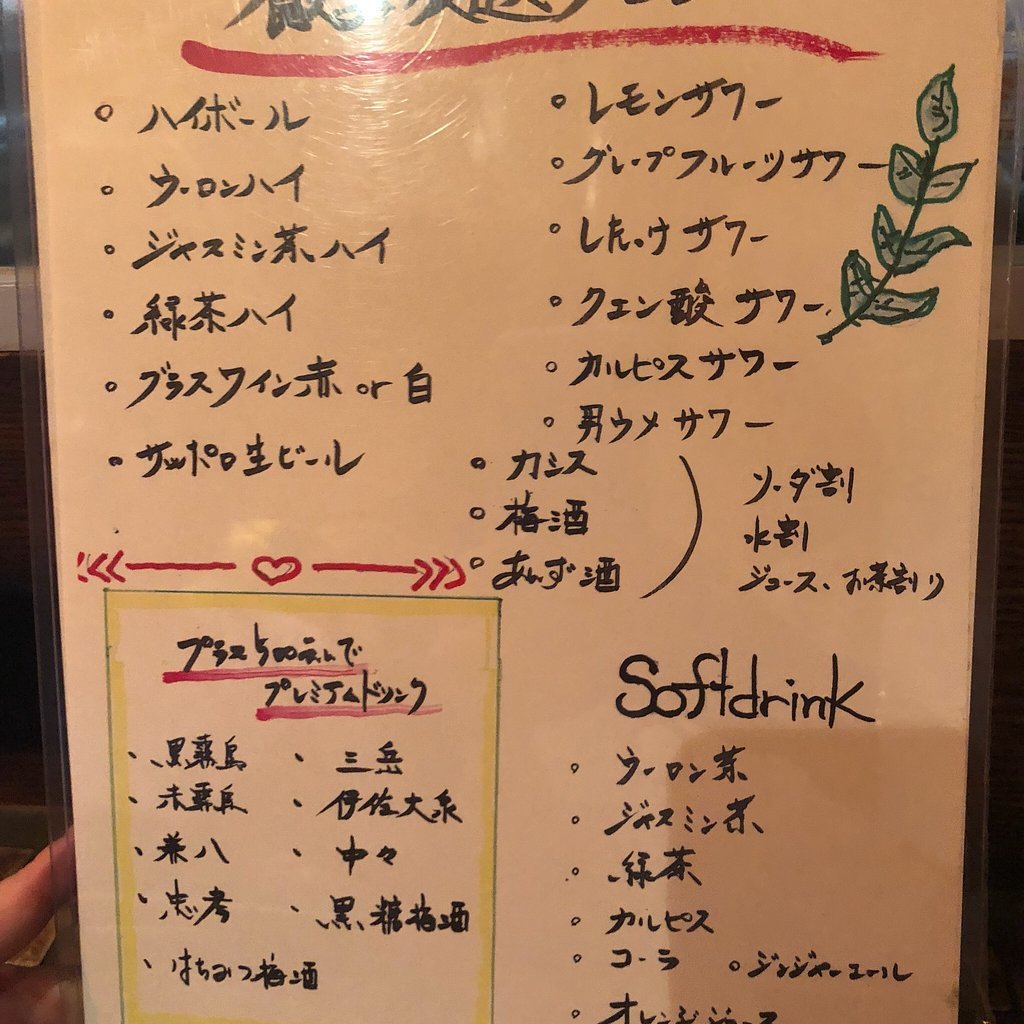 ・ハイボール
・ウーロンハイ
・ジャスミン茶ハイ
・緑茶ハイ
・グラスワイン赤 or 白
・サッポロ生ビール
・レモンサワー
・グレープフルーツサワー
・クエン酸サワー
・カルピスサワー
・男ウメサワー
・カシス
・梅酒
・あんず酒
ソーダ割
水割
ジュース、お茶割り
プレミアムドリンク
・黒霧島
・赤霧島
・兼八
・忠考
・はちみつ梅酒
・三岳
・伊佐大泉
・中々
・黒糖梅酒
Softdrink
・ウーロン茶
・ジャスミン茶
・緑茶
・カルピス
・コーラ ・ジンジャーエール
オレンジジュース